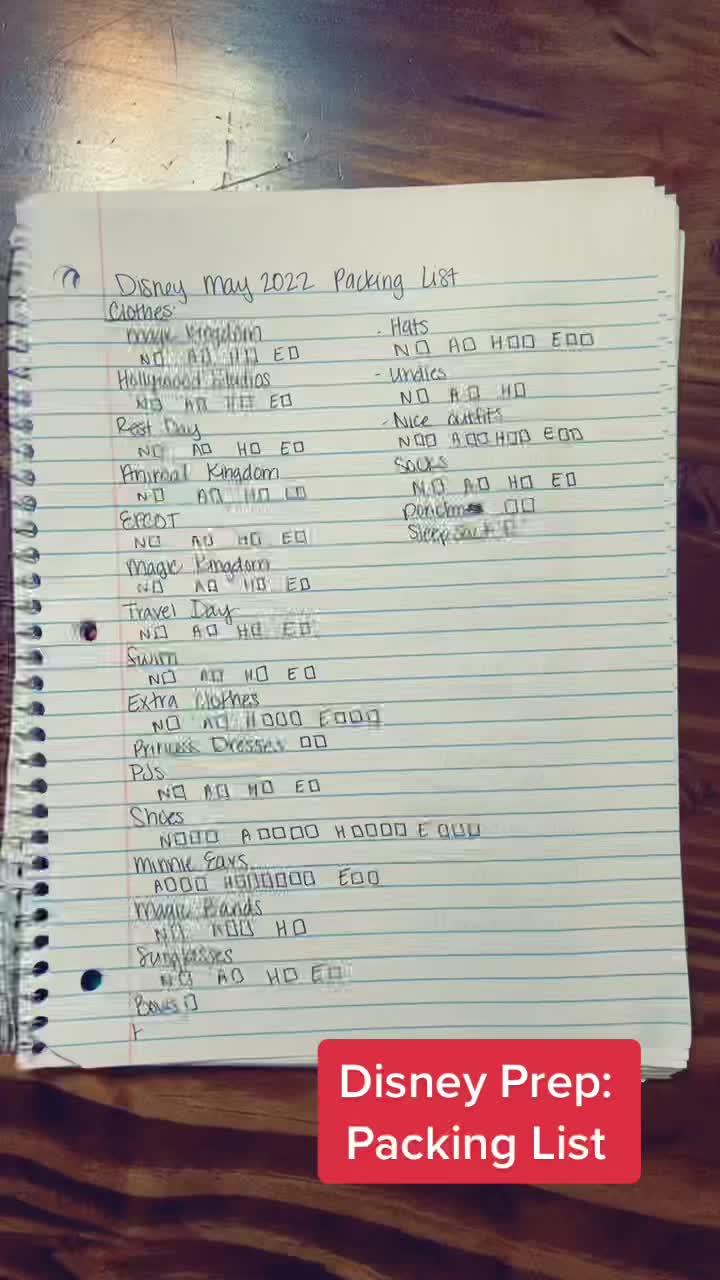 Disney May 2022 Packing List
Clothes:
Magic Kingdom
N☐ A☐ H☐ E☐
Hollywood Studios
N☐ A☐ H☐ E☐
Rest Day
N☐ A☐ H☐ E☐
Animal Kingdom
N☐ A☐ H☐ E☐
EPCOT
N☐ A☐ H☐ E☐
Magic Kingdom
N☐ A☐ H☐ E☐
Travel Day
N☐ A☐ H☐ E☐
Swim
N☐ A☐ H☐ E☐
Extra Clothes
N☐ A☐ H☐☐☐ E☐☐☐
Princess Dresses ☐☐
PJs
N☐ A☐ H☐ E☐
Shoes
N☐☐☐ A☐☐☐☐ H☐☐☐☐ E☐☐☐
Minnie Ears
A☐☐☐ H☐☐☐☐☐☐ E☐☐
Magic Bands
N☐ A☐☐ H☐
Sunglasses
N☐ A☐ H☐ E☐
Bows ☐
- Hats
N☐ A☐ H☐☐ E☐☐
- Undies
N☐ A☐ H☐
- Nice outfits
N☐☐ A☐☐ H☐☐ E☐☐
Socks
N☐ A☐ H☐ E☐
☐☐
Sleep Sack ☐
Disney Prep:
Packing List